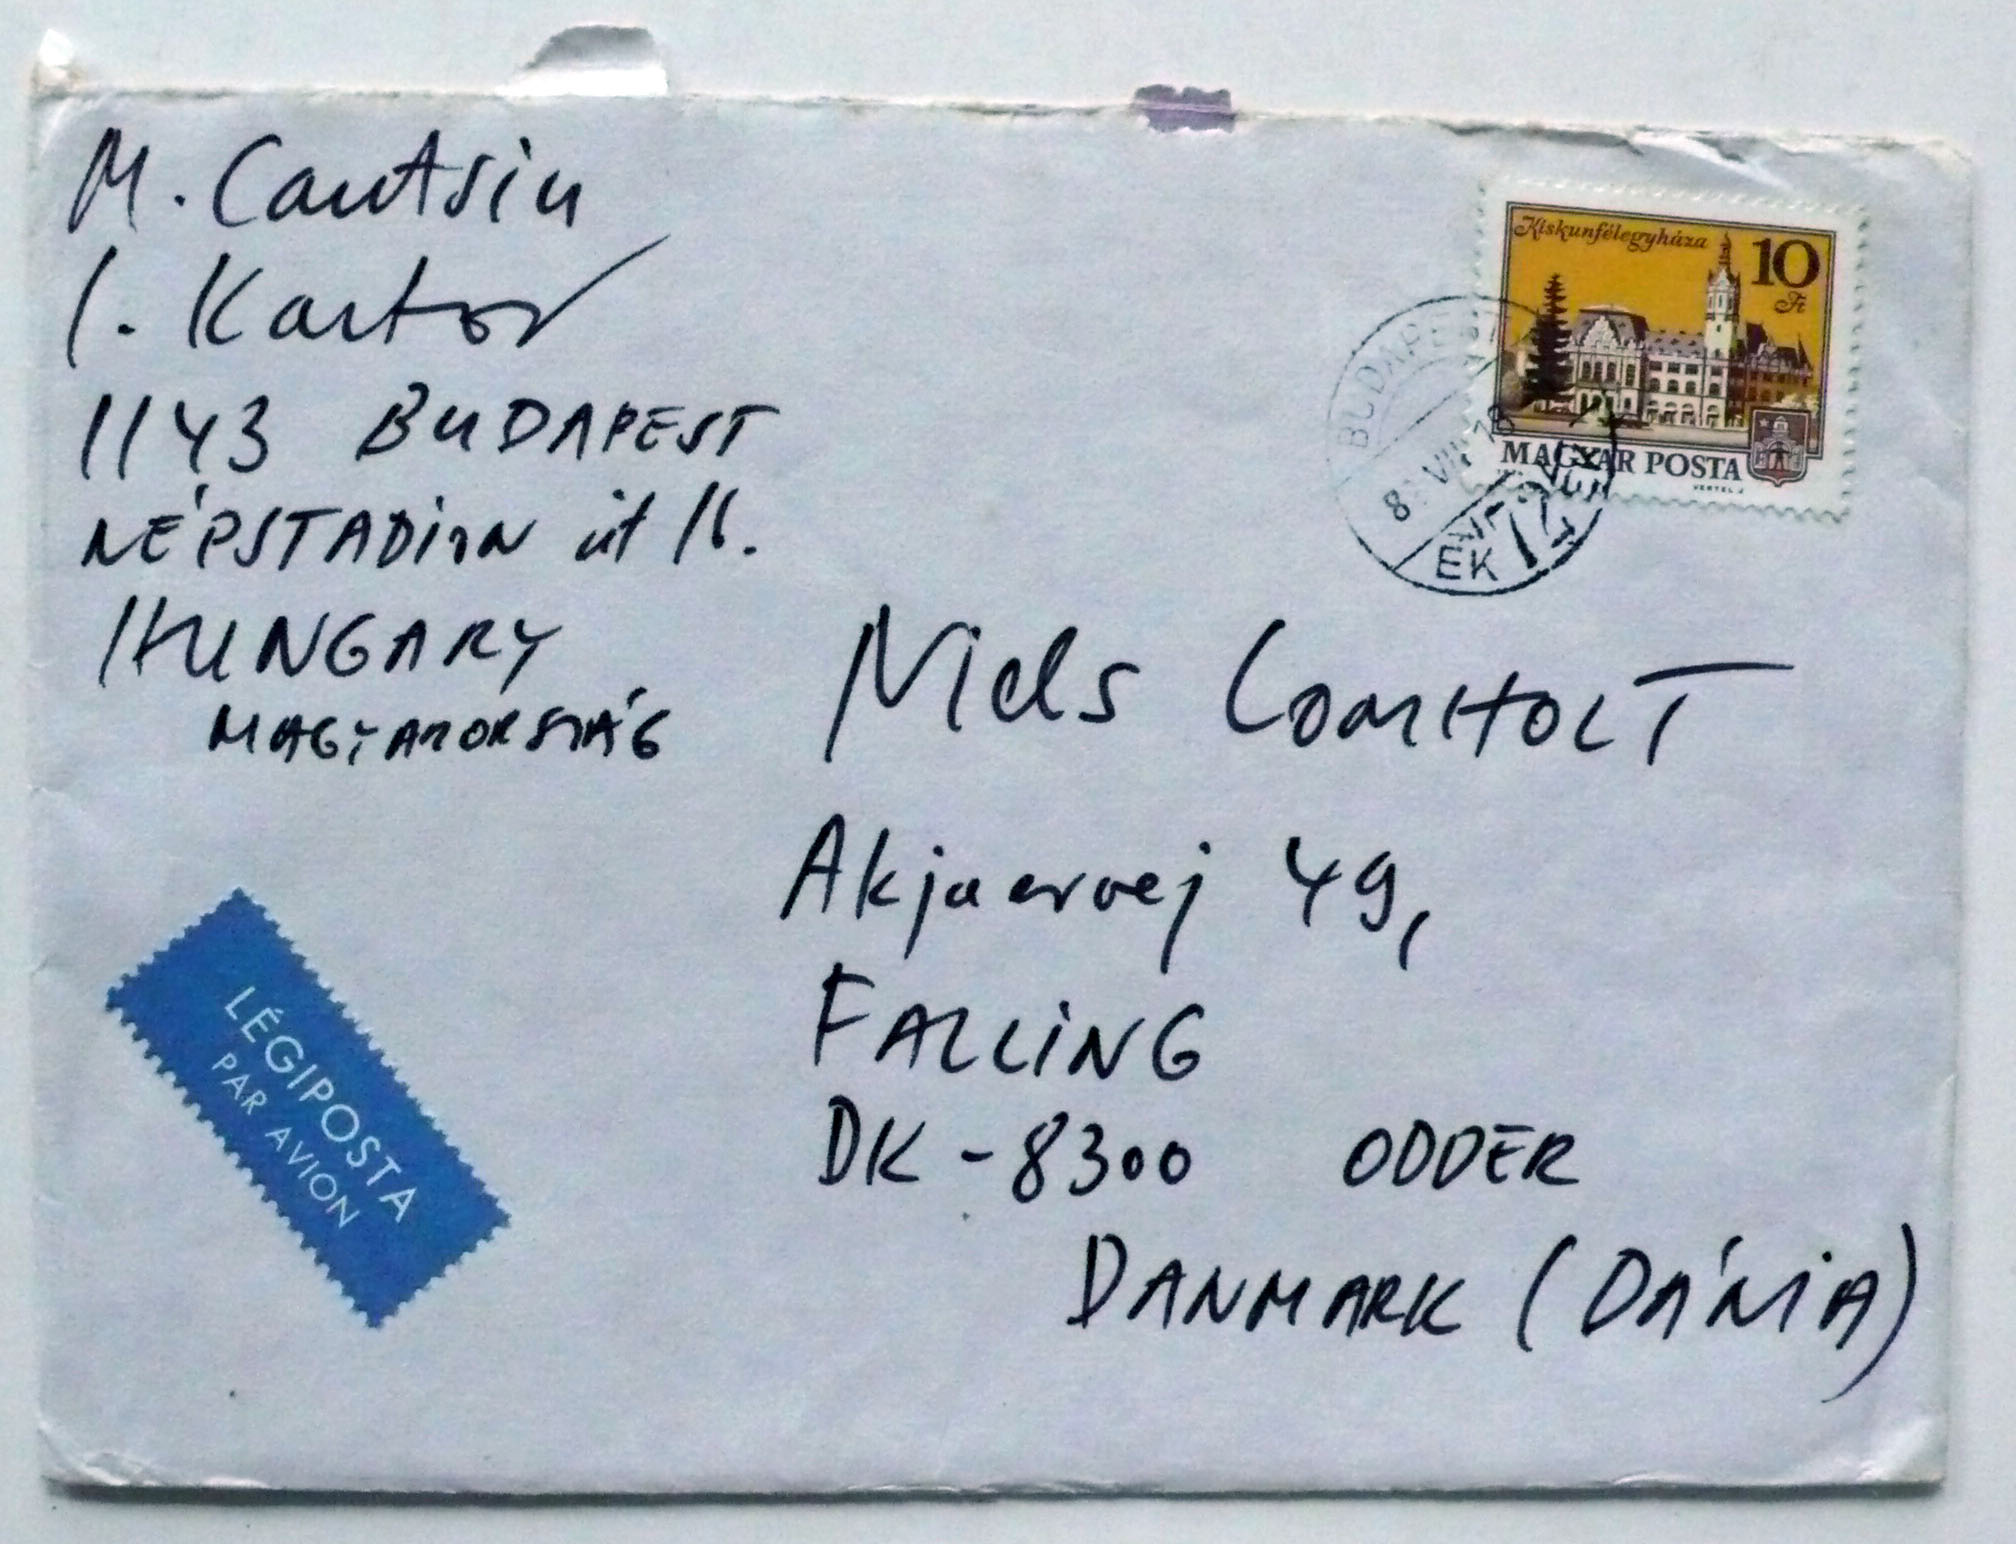 M. CantSin
I. Kantor
1143 BUDAPEST
NÉPSTADION út 16.
HUNGARY
MAGYARORSZÁG
Kiskunfélegyháza
10
Ft
MAGYAR POSTA
VERTEL J
BUDAPEST
EK
Niels LOMHOLT
Akjaervej 49,
FALLING
DK-8300 ODDER
DANMARK (DÁNIA)
LÉGIPOSTA
PAR AVION